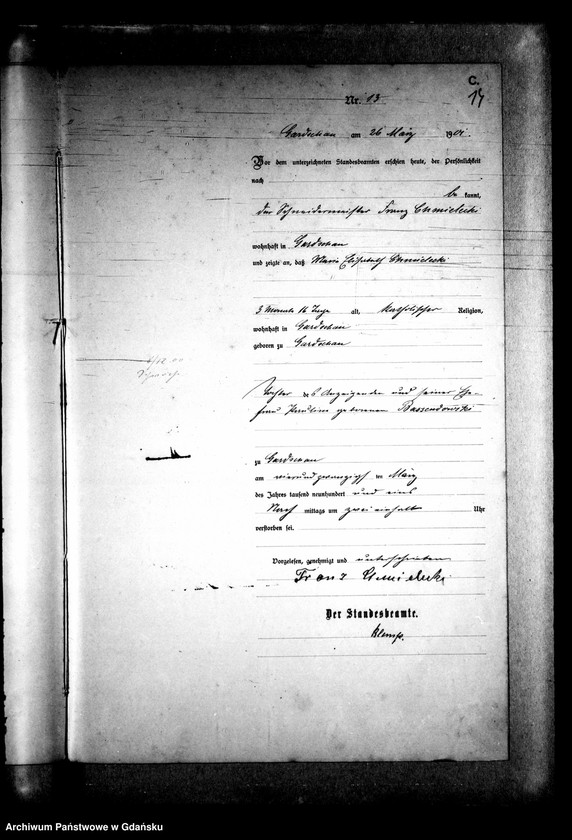 C.
14
Nr. 13
Gardschau am 26 März 1901.
Vor dem unterzeichneten Standesbeamten erschien heute, der Persönlichkeit
nach
bekannt,
der Schneidermeister Franz Chmielecki
wohnhaft in Gardschau
und zeigte an, daß Maria Elisabeth Chmielecki
3 Monate 16 Tage alt, katholischer Religion,
wohnhaft in Gardschau
geboren zu Gardschau
Tochter des Anzeigenden und seiner Ehe-
frau Pauline geborenen Bassendowski
zu Gardschau
am vierundzwanzigsten März
des Jahres tausend neunhundert und eins
Nachmittags um zwei einhalb Uhr
verstorben sei.
Vorgelesen, genehmigt und unterschrieben
Franz Chmielecki
Der Standesbeamte.
Klemp.
Archiwum Państwowe w Gdańsku